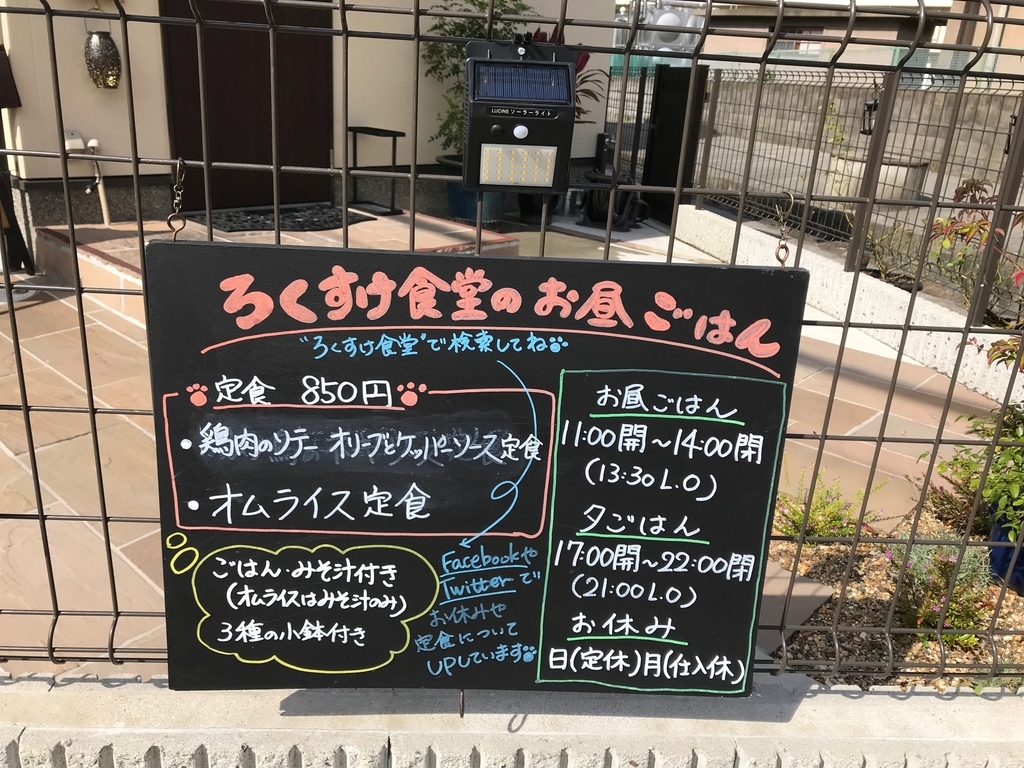 LUCINE ソーラーライト
ろくすけ食堂のお昼ごはん
"ろくすけ食堂"で検索してね
定食 850円
・鶏肉のソテー オリーブとケッパーソース定食
・オムライス定食
ごはん・みそ汁付き
(オムライスはみそ汁のみ)
3種の小鉢付き
Facebookや
Twitterで
お休みや
定食について
UPしています
お昼ごはん
11:00開~14:00閉
(13:30 L.O)
夕ごはん
17:00開~22:00閉
(21:00 L.O)
お休み
日(定休)月(仕入休)